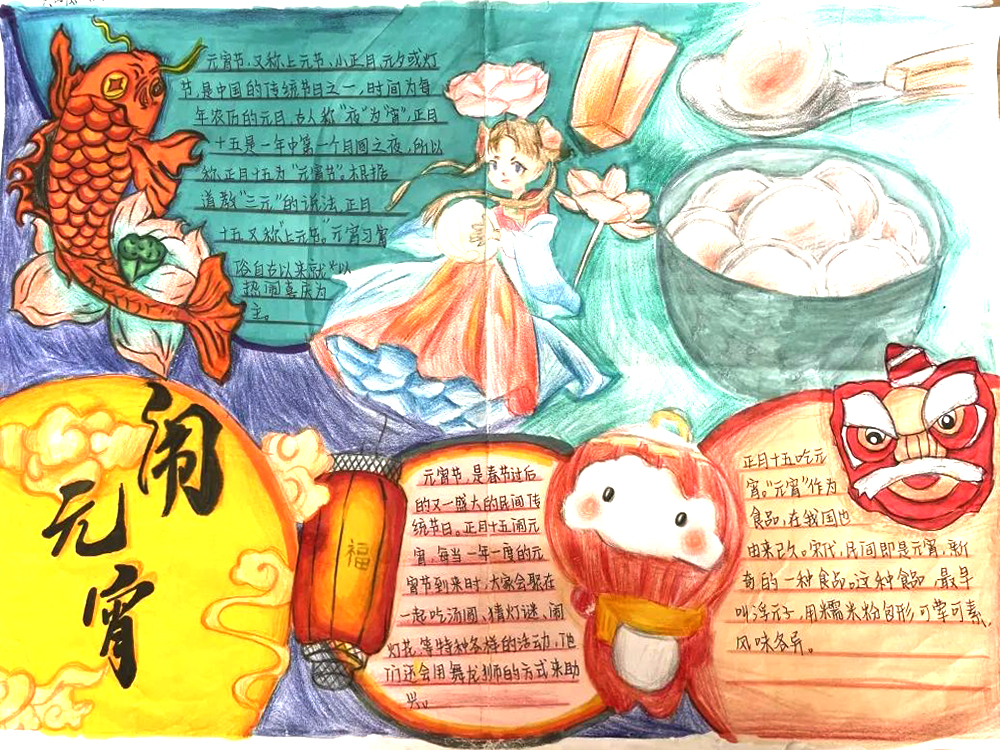 元宵节,又称上元节、小正月、元夕或灯
节,是中国的传统节日之一,时间为每
年农历的元月,古人称“夜”为“宵”,正月
十五是一年中第一个月圆之夜,所以
称正月十五为“元宵节”。根据
道教“三元”的说法,正月
十五又称上元节。元宵习
俗自古以来就以
热闹喜庆为
主。
闹
元
宵
福
元宵节,是春节过后
的又一盛大的民间传
统节日。正月十五闹元
宵,每当一年一度的元
宵节到来时,大家会聚在
一起吃汤圆、猜灯谜、闹
灯花等特种各样的活动,他
们还会用舞龙狮的方式来助
兴。
正月十五吃元
宵。“元宵”作为
食品,在我国也
由来已久。宋代,民间即是元宵,新
奇的一种食品。这种食品,最早
叫浮元子,用糯米粉包形,可荤可素,
风味各异。